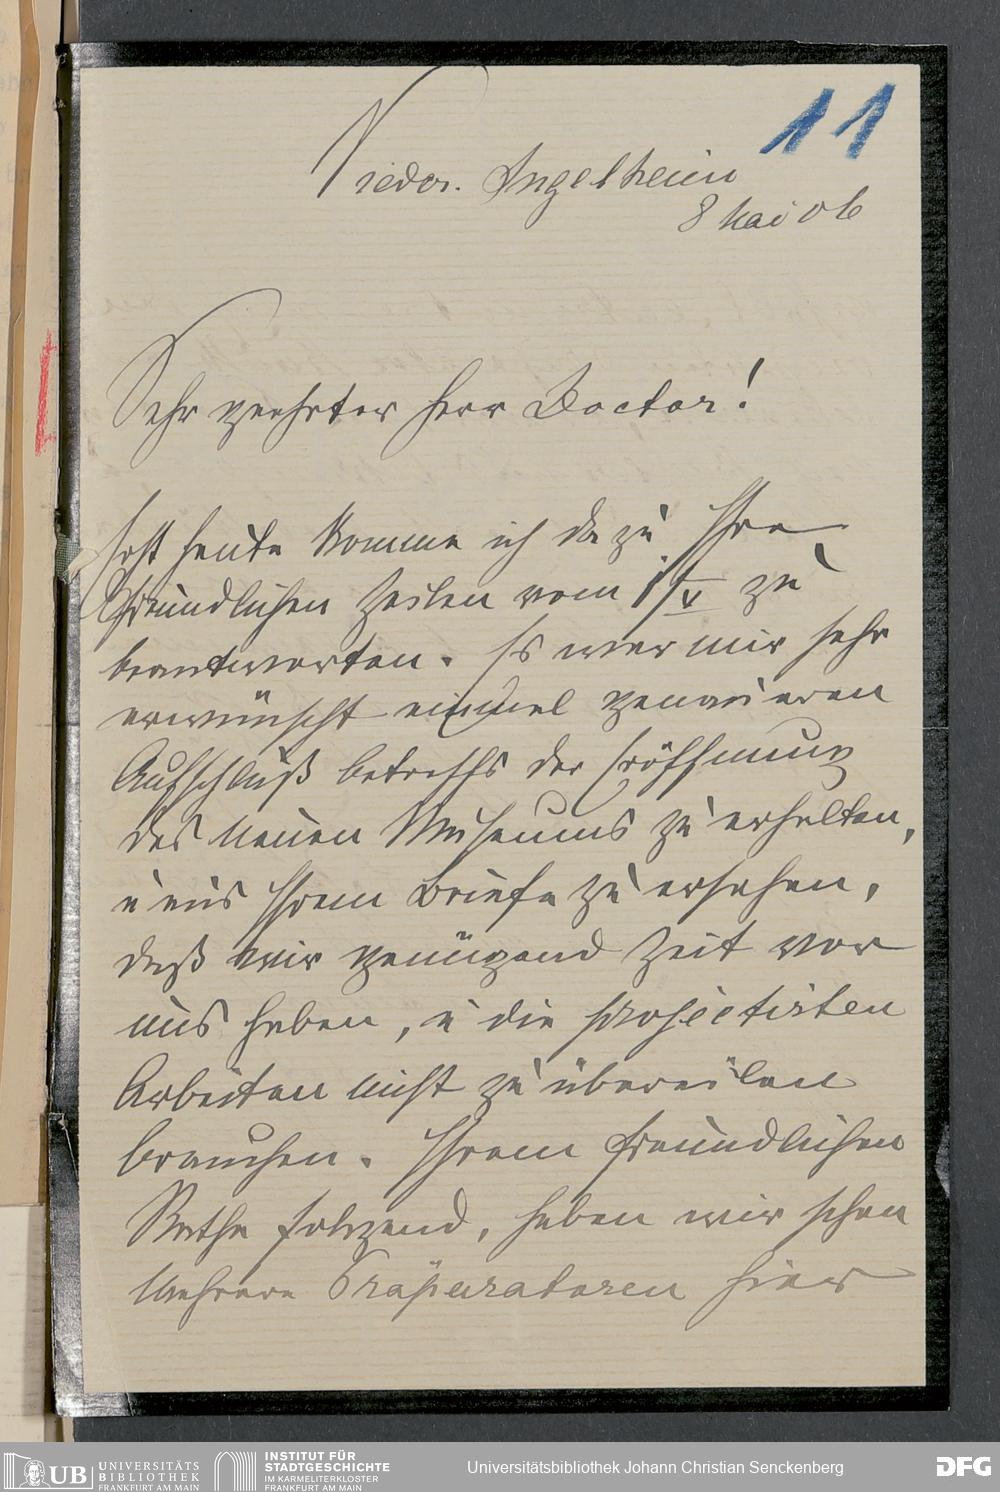 11
Nieder. Ingelheim
8 Mai 06
Sehr geehrter Herr Doctor!
Erst heute komme ich dazu Ihre
freundlichen Zeilen vom 1/V zu
beantworten. Es war mir sehr
erwünscht einmal genaueren
Aufschluß betreffs der Eröffnung
des neuen Museums zu erhalten,
u aus Ihrem Briefe zu ersehen,
daß wir genügend Zeit vor
uns haben, u die projectirten
Arbeiten nicht zu übereilen
brauchen. Ihrem freundlichen
Rathe folgend, haben wir schon
mehrere Präparatoren hier
UB UNIVERSITÄTS
BIBLIOTHEK
FRANKFURT AM MAIN
INSTITUT FÜR
STADTGESCHICHTE
IM KARMELITERKLOSTER
FRANKFURT AM MAIN
Universitätsbibliothek Johann Christian Senckenberg
DFG